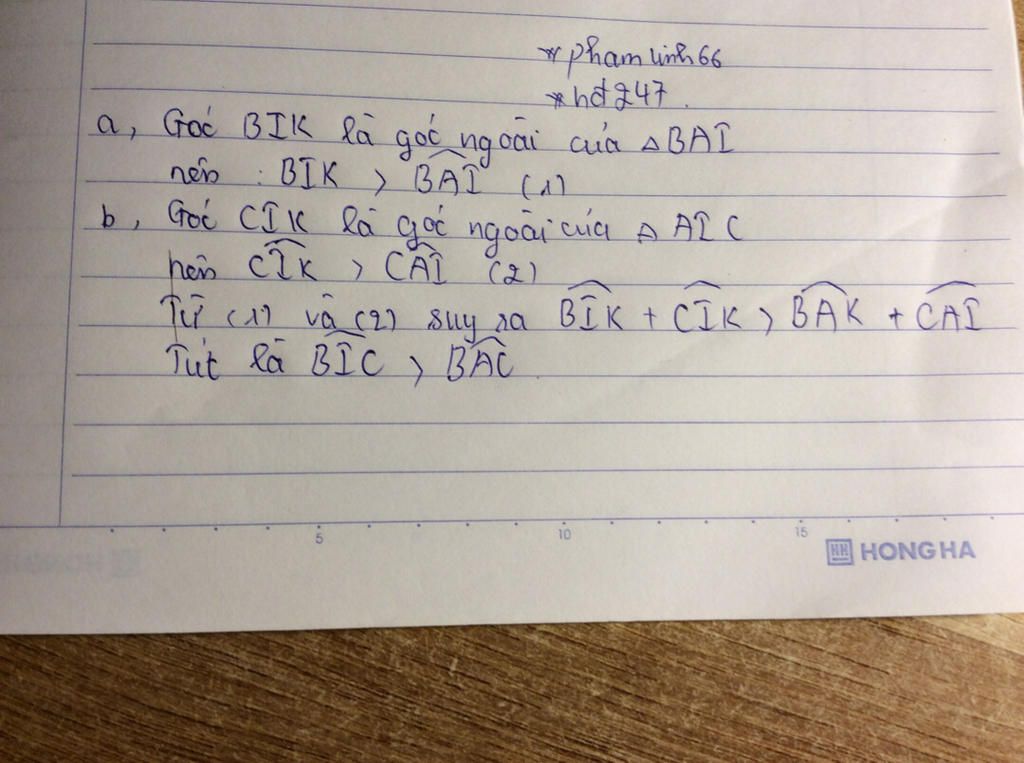 * phamlinh66
* hđ247.
a, Góc BIK là góc ngoài của △BAI
nên : BIK > BAI (1)
b, Góc CIK là góc ngoài của △ AIC
nên CIK > CAI (2)
Từ (1) và (2) suy ra BIK + CIK > BAK + CAI
Tức là BIC > BAC.
5 10 15
HH HONG HA